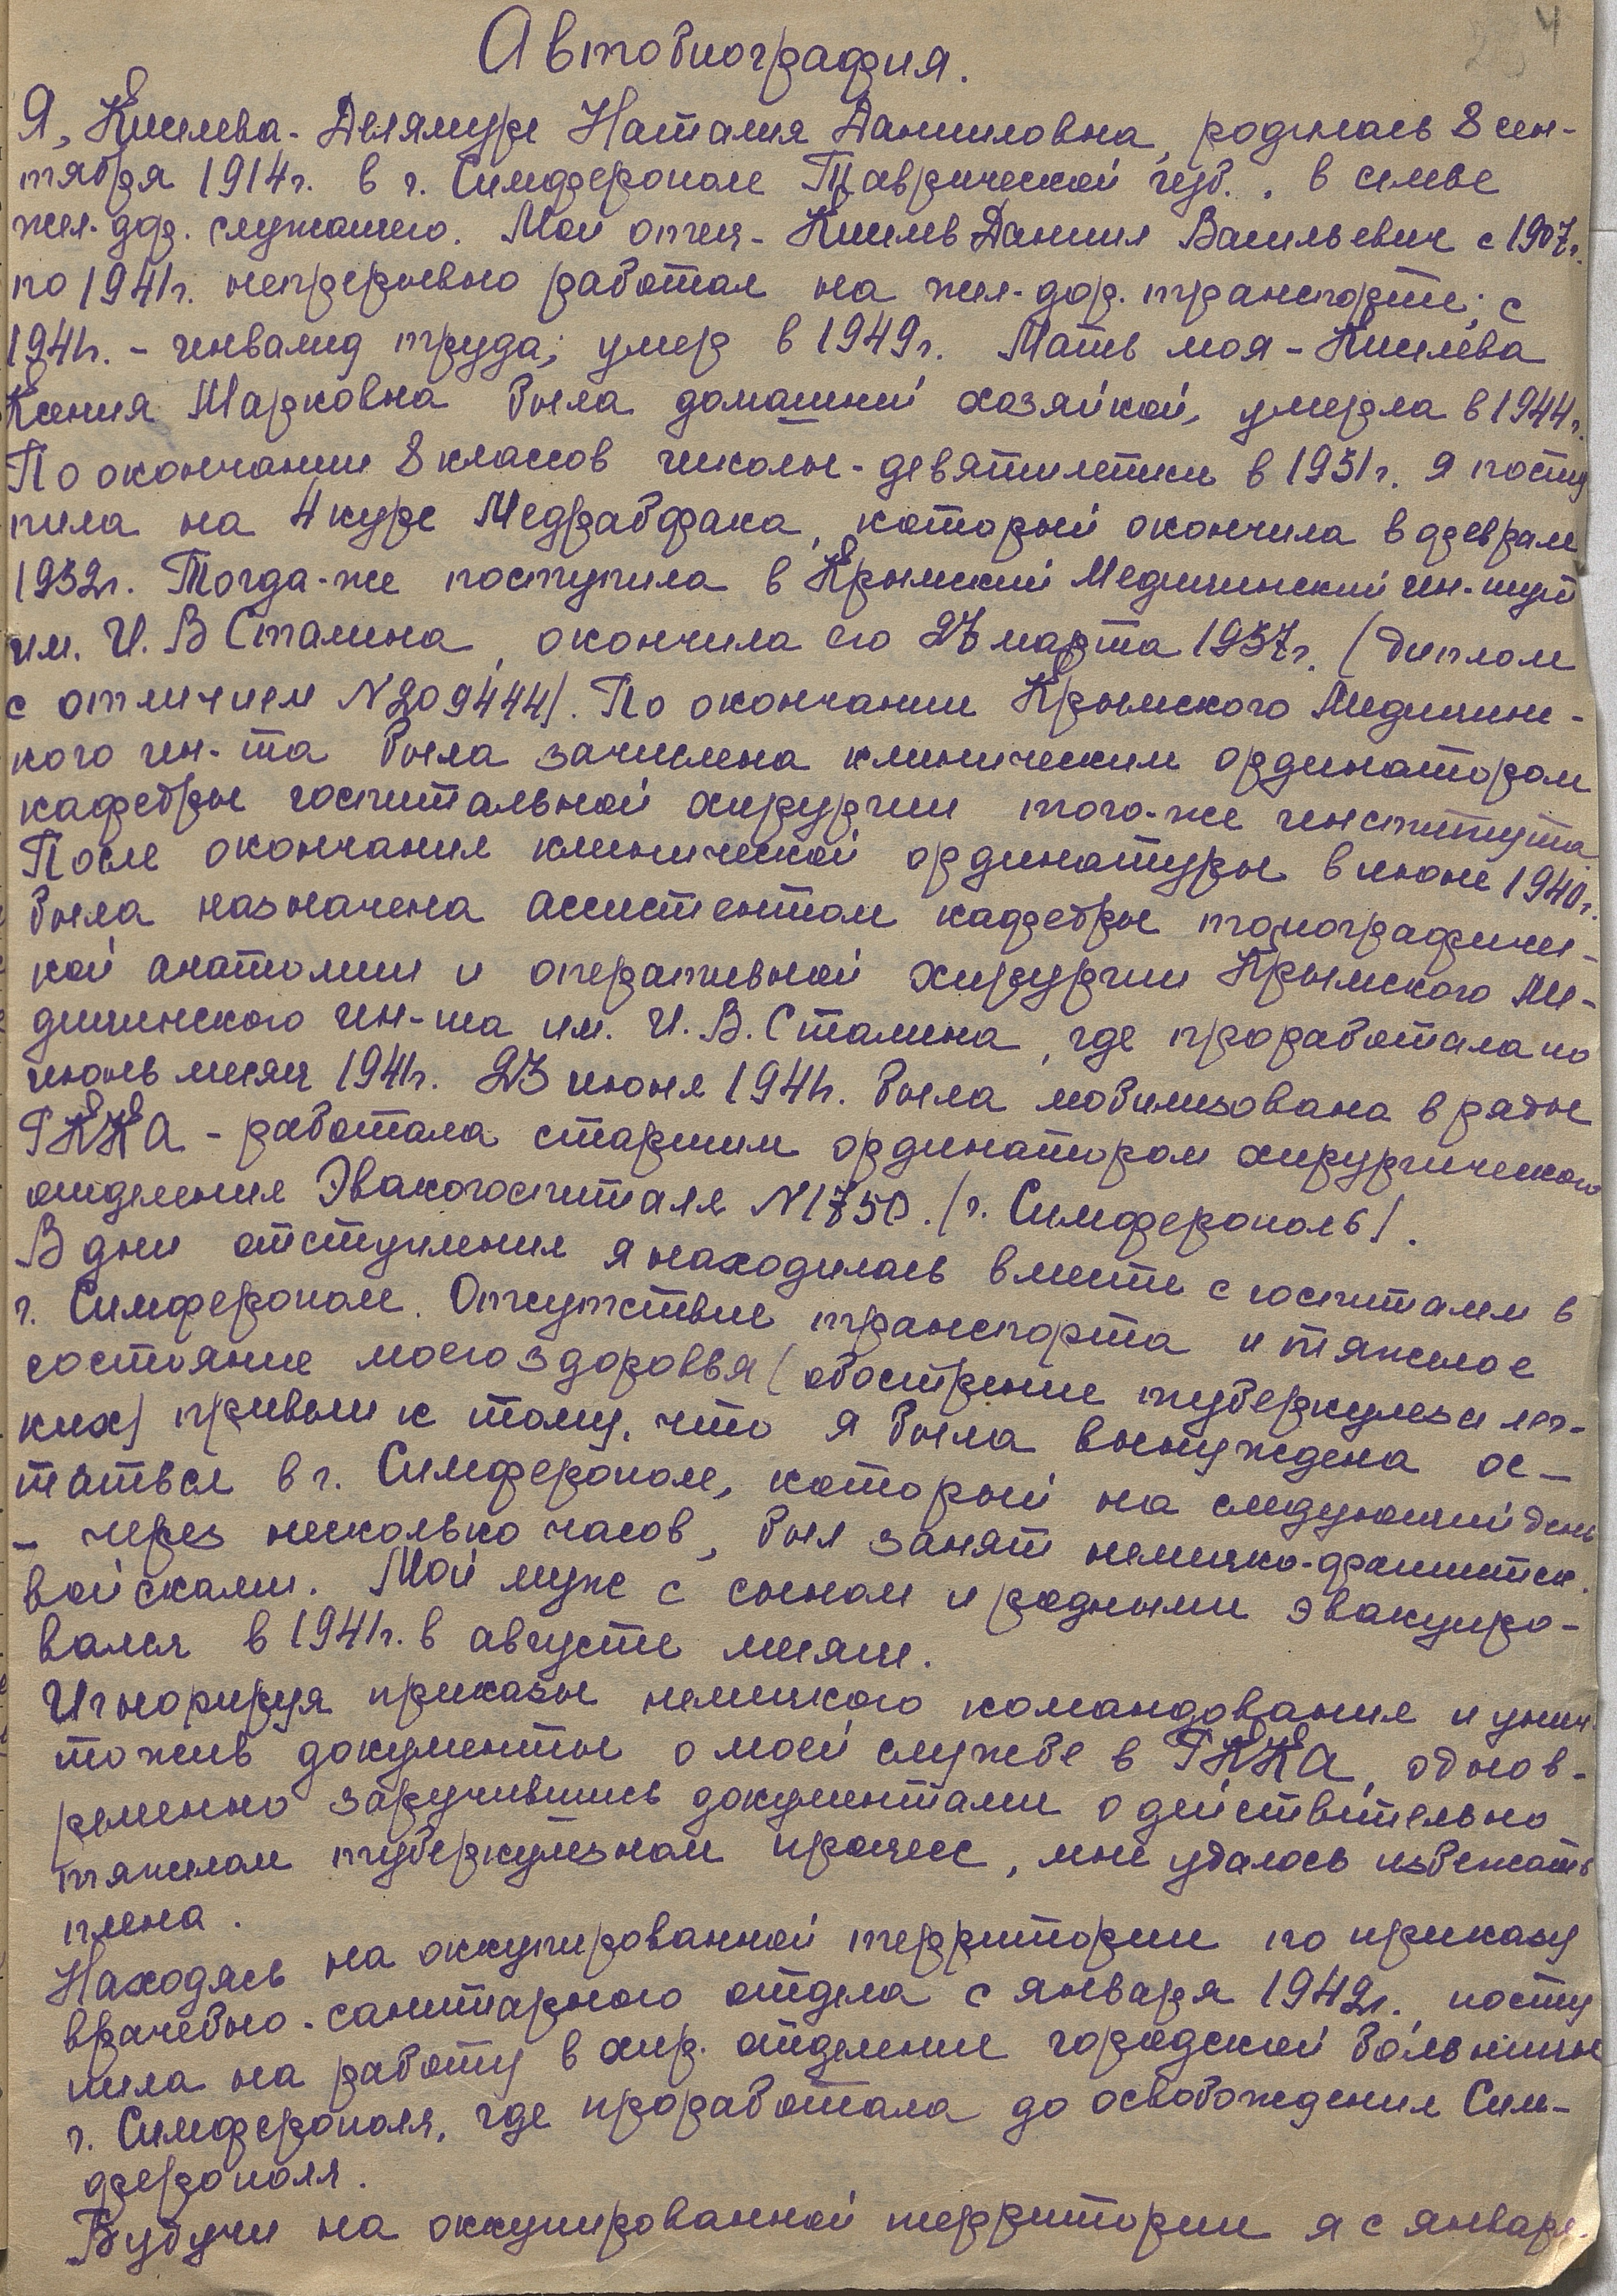 4
Автобиография.
Я, Киселева-Делямуре Наталия Данииловна, родилась 8 сен-
тября 1914г. в г. Симферополе Таврической губ., в семье
жел-дор. служащего. Мой отец - Киселев Даниил Васильевич с 1907г.
по 1941г. непрерывно работал на жел-дор. транспорте; с
1941г. - инвалид труда; умер в 1949г. Мать моя - Киселева
Ксения Марковна была домашней хозяйкой, умерла в 1944г.
По окончании 8 классов школы-девятилетки в 1931г. я посту
пила на 4 курс Медрабфака, который окончила в феврале
1932г. Тогда-же поступила в Крымский Медицинский ин-тут
им. И. В Сталина, окончила его 27 марта 1937г. (диплом
с отличием N209444). По окончании Крымского Медицинс-
кого ин-та была зачислена клиническим ординатором
кафедры госпитальной хирургии того-же института
После окончания клинической ординатуры в июне 1940г.
была назначена ассистентом кафедры топографичес-
кой анатомии и оперативной хирургии Крымского Ме-
дицинского ин-та им. И. В. Сталина, где проработала по
июнь месяц 1941г. 23 июня 1941г. была мобилизована в ряды
РККА - работала старшим ординатором хирургического
отделения Эвакогоспиталя N1750. (г. Симферополь).
В дни отступления я находилась вместе с госпиталем в
г. Симферополе. Отсутствие транспорта и тяжелое
состояние моего здоровья (обострение туберкулеза лег-
ких) привели к тому, что я была вынуждена ос-
таться в г. Симферополе, который на следующий день
- через несколько часов, был занят немецко-фашистск.
войсками. Мой муж с сыном и родными эвакуиро-
вался в 1941г. в августе месяце.
Игнорируя приказы немецкого командования и унич
тожив документы о моей службе в РККА, однов-
ременно заручившись документами о действительно
тяжелом туберкулезном процессе, мне удалось избежать
плена.
Находясь на оккупированной территории по приказу
врачебно-санитарного отдела с января 1942г. посту
пила на работу в хир. отделение городской больницы
г. Симферополя, где проработала до освобождения Сим-
ферополя.
Будучи на оккупированной территории я с января